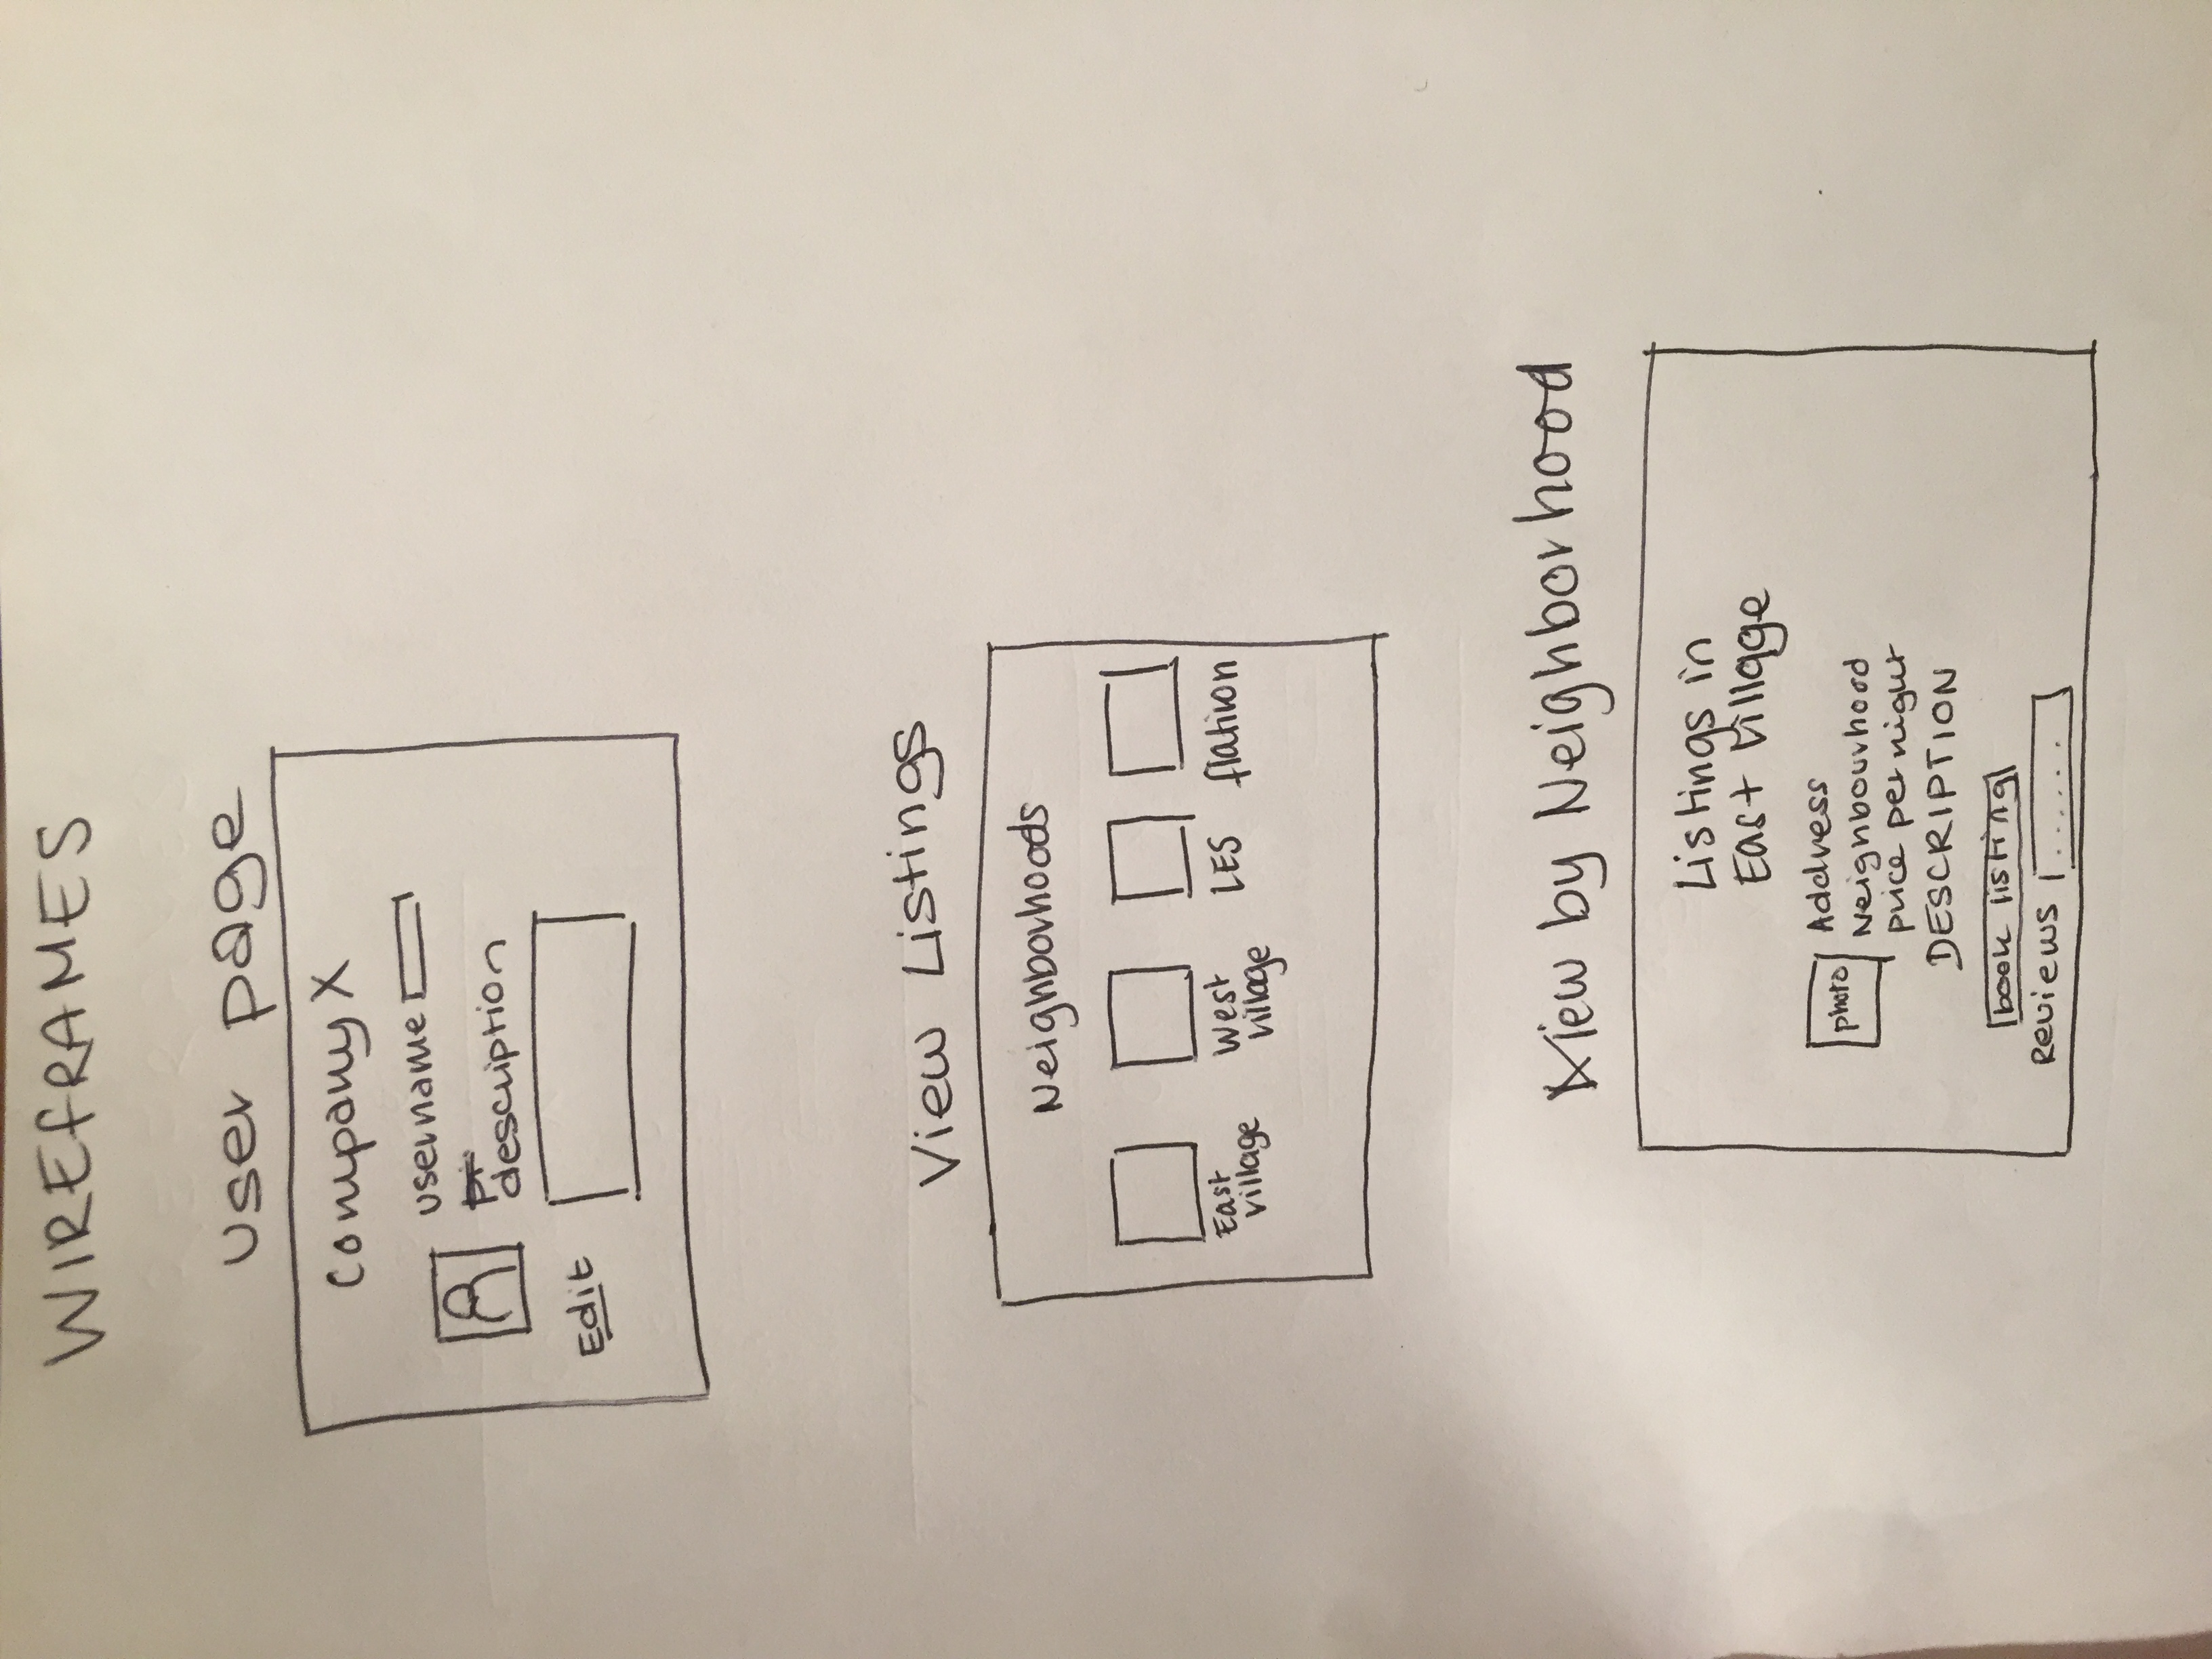 WIREFRAMES
user page
Company X
username
description
Edit
View Listings
Neighborhoods
East
village
West
village
LES
flatiron
View by Neighborhood
Listings in
East Village
photo
Address
Neighbourhood
price per night
DESCRIPTION
book listing
Reviews ......